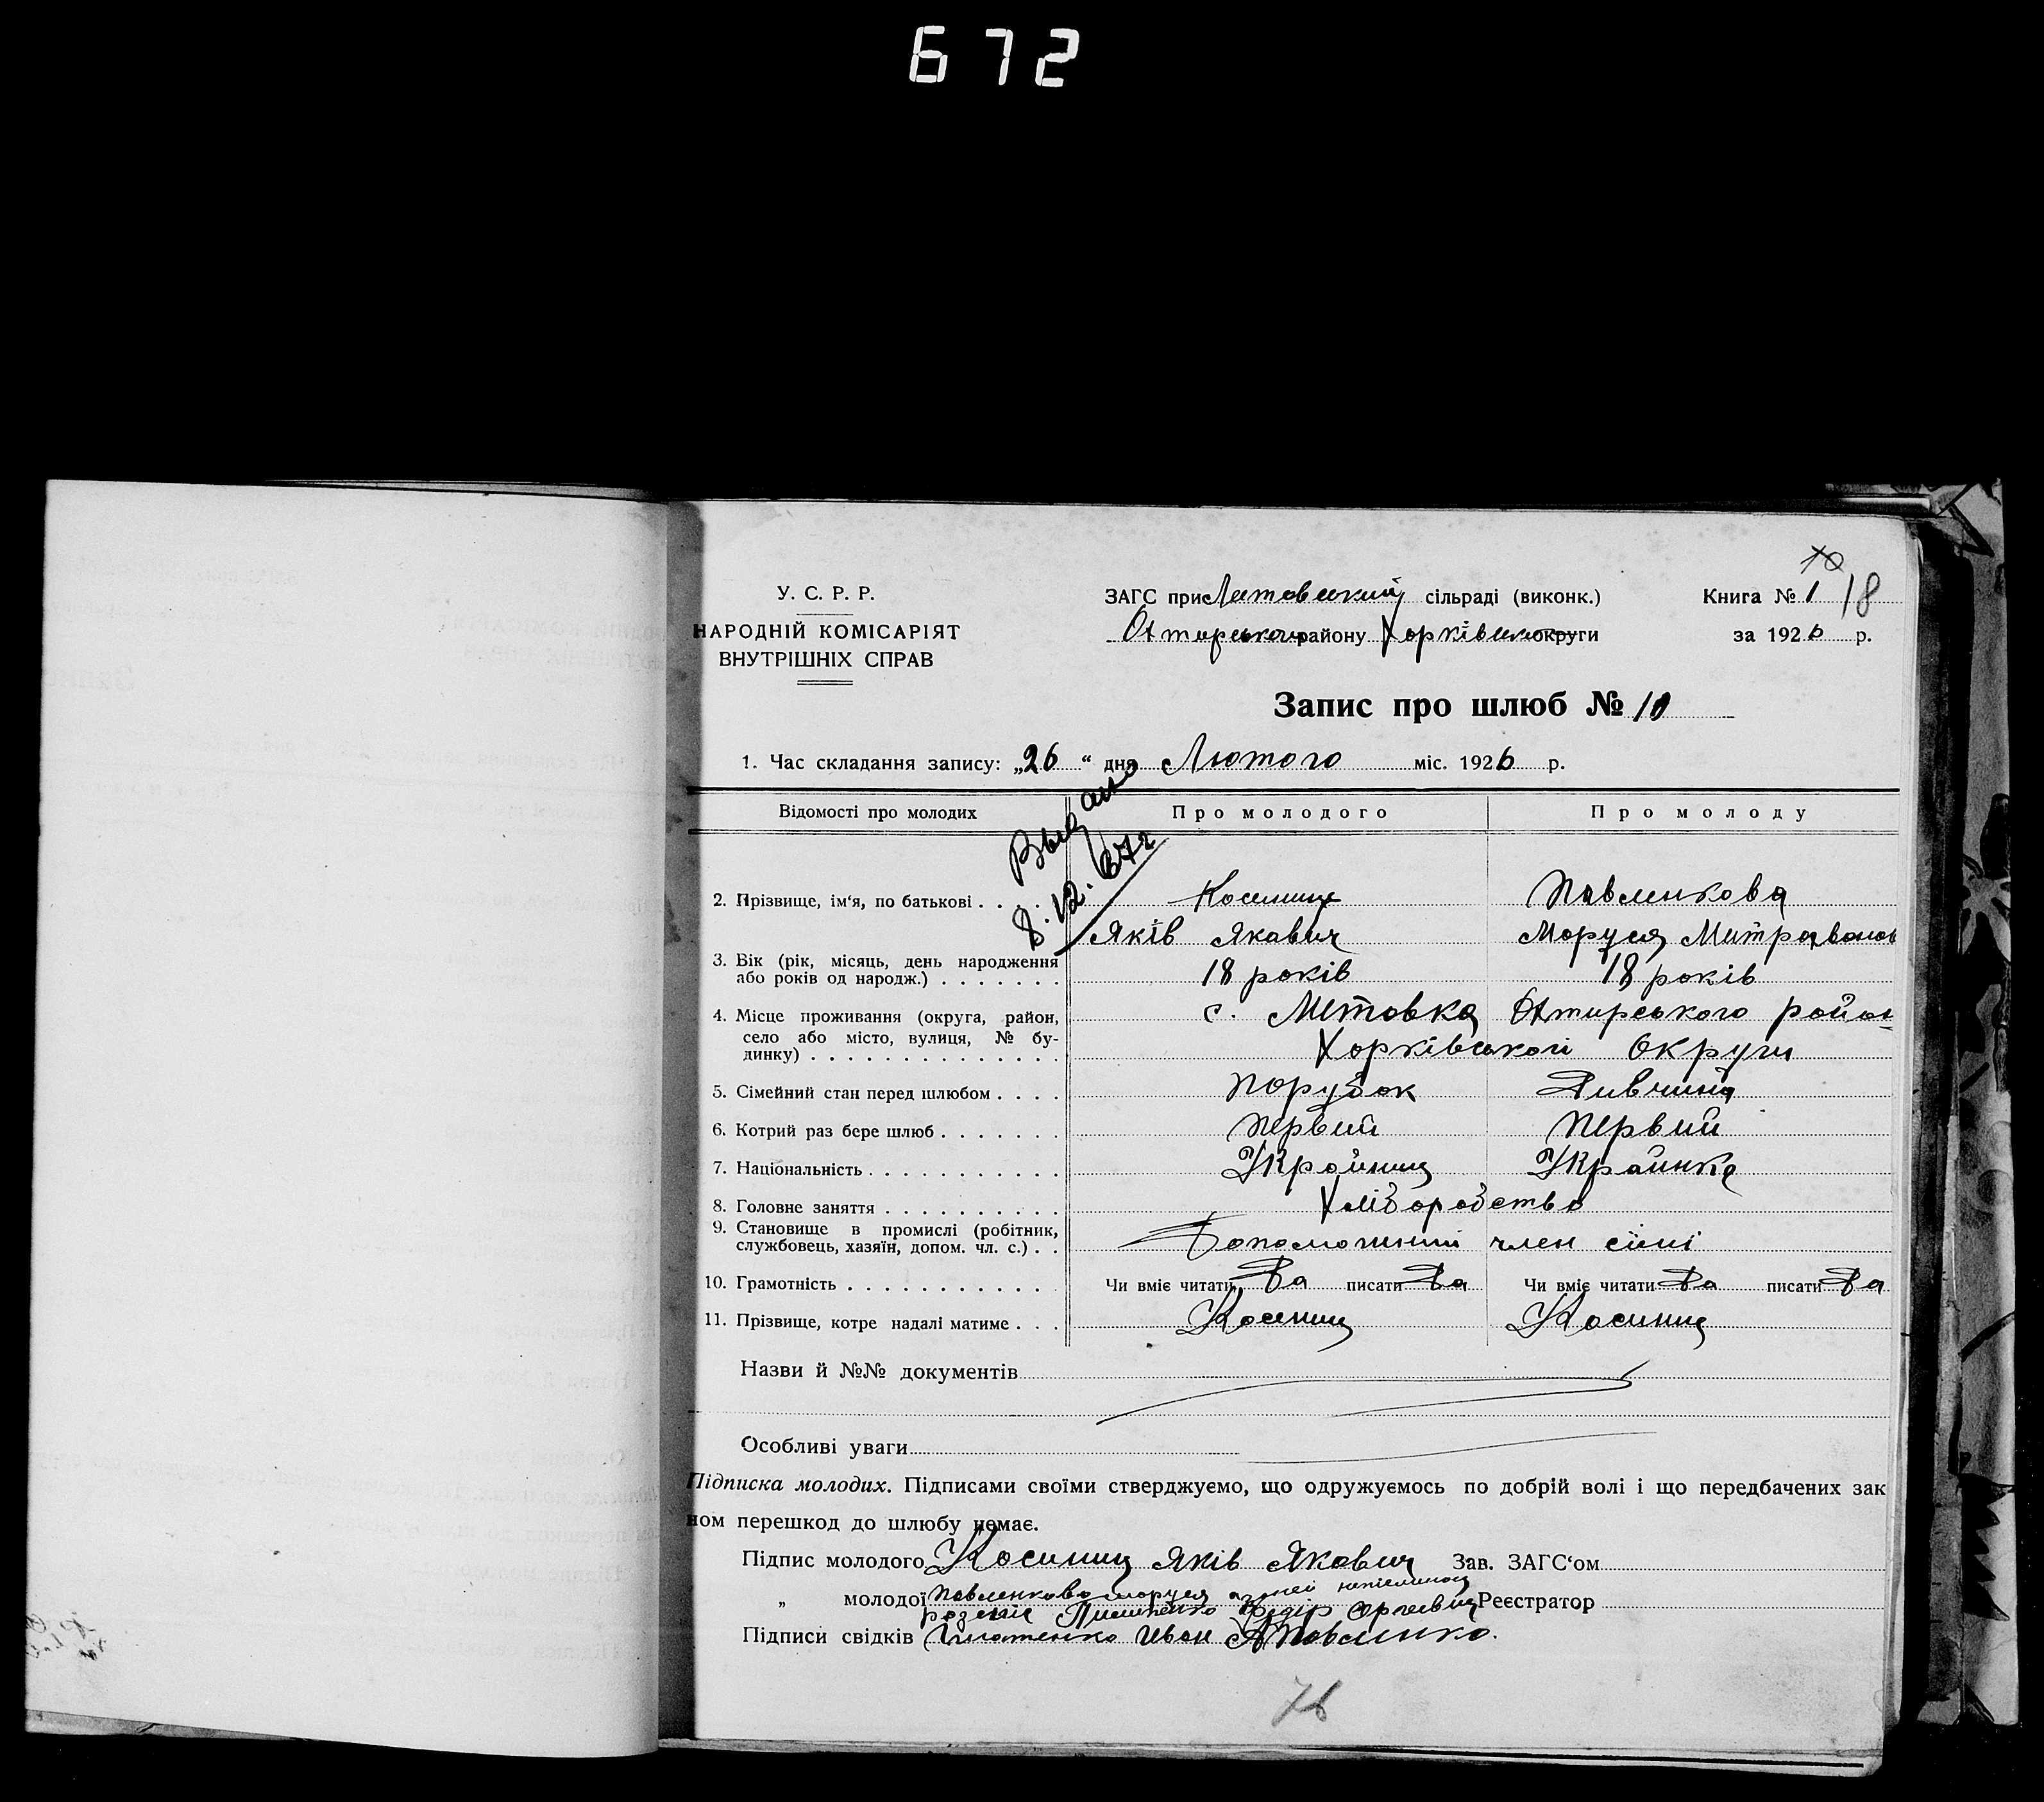 672
У. С. Р. Р.
НАРОДНІЙ КОМІСАРІЯТ
ВНУТРІШНІХ СПРАВ
ЗАГС при Литовський сільраді (виконк.)
Охтирського району Хорківської округи
10
Книга № 1 18
за 1926 р.
Запис про шлюб № 10
1. Час складання запису: „26“ дня Лютого міс. 1926 р.
Выдано
8.12.
Відомості про молодих Про молодого Про молоду
2. Прізвище, ім‘я, по батькові . . . . Косиниц Павленкова
Яків Якавич Моруся Митрафанов
3. Вік (рік, місяць, день народження
або років од народж.) . . . . . . . 18 років 18 років
4. Місце проживання (округа, район, с. Литовка Охтирського район
село або місто, вулиця, № бу-
динку) . . . . . . . . . . . . . . Хорківської Округи
5. Сімейний стан перед шлюбом . . . . Порубок Дивчина
6. Котрий раз бере шлюб . . . . . . . Первий Первий
7. Національність . . . . . . . . . . . Укроїниц Украинка
8. Головне заняття . . . . . . . . . . Хліборобство
9. Становище в промислі (робітник,
службовець, хазяїн, допом. чл. с.) . . Допоможний член сімі
10. Грамотність . . . . . . . . . . . Чи вміє читати Да писати Да Чи вміє читати Да писати Да
11. Прізвище, котре надалі матиме . . . Косиниц Косиниц
Назви й №№ документів
Особливі уваги
Підписка молодих. Підписами своїми стверджуємо, що одружуємось по добрій волі і що передбачених зак
ном перешкод до шлюбу немає.
Підпис молодого Косиниц Яків Якович Зав. ЗАГС‘ом
„ молодої Павленкова Моруся Реєстратор
Федір
Підписи свідків Иван Павленко.
76